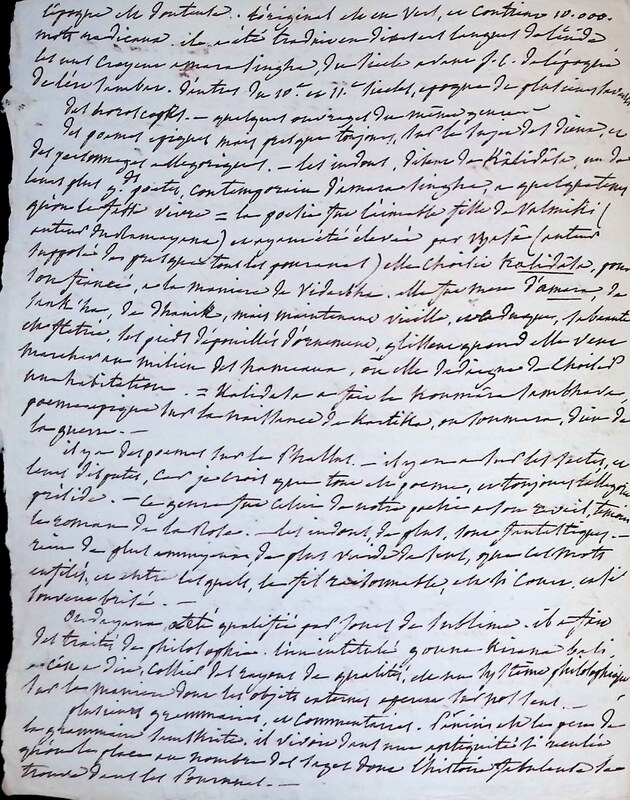 époque est douteuse. L'original est en vers, et contient 10.000.
mots radicaux. il a été traduit en diverses langues de l'inde
les uns croyent amara Singha, du siecle avant J.C. de l'époque
de l'ere Sambat. d'autres du 10e et 11e siecles, époque de plusieurs
des horoscopes. — quelques ouvrages du même genre
des poemes epiques mais presque toujours, sur le sujet des dieux, et
des personnages allegoriques. — les indous, disent de Kâlidâsa, un de
leurs plus gds poetes, contemporain d'amara Singha, a quelque tems
qu'on le fasse vivre = la poesie fut l'aimable fille de Valmiki (
auteur du Ramayana) et ayant été élevée par Vyasa (auteur
supposé de presque tous les pouranas) elle choisit Kalidâsa, pour
son fiancé, a la maniere de Vidarbha. elle fut mere d'amara, de
Sank'ha, de Dhanik, mais maintenant vieille, et caduque, sa beauté
est fletrie, ses pieds dépouillés d'ornemens, glissent quand elle veut
marcher au milieu des hameaux, où elle dedaigne de choisir
une habitation. = Kalidasa a fait le Koumâra Sambhava,
poeme epique sur la naissance de Kartika, ou Koumara, dieu de
la guerre. —
il y a des poemes sur le Phallus. — il y en a sur les sectes, et
leurs disputes, car je crois que tout est poeme, et toujours l'allegorie
préside. — ce genre fut celui de notre poesie a son reveil, temoin
le roman de la Rose. — les indous, de plus, sont fantastiques. —
rien de plus ennuyeux, de plus vuide de sens, que ces mots
enfilés, et entre lesquels, le fil raisonnable, est si court, et si
souvent brisé. —
Oudayana, a été qualifié par Jones de sublime. il a fait
des traités de philosophie. l'un intitulé gouna Kirana bali
c'est a dire, collier des rayons de qualités, est un systême philosophique
sur la maniere dont les objets externes operent sur nos sens. —
plusieurs grammaires, et commentaires. Panini est le pere de
la grammaire Sanskrite. il vivoit dans une antiquité si reculée
qu'on le place au nombre des sages dont l'histoire fabuleuse se
trouve dans les Pouranas. —